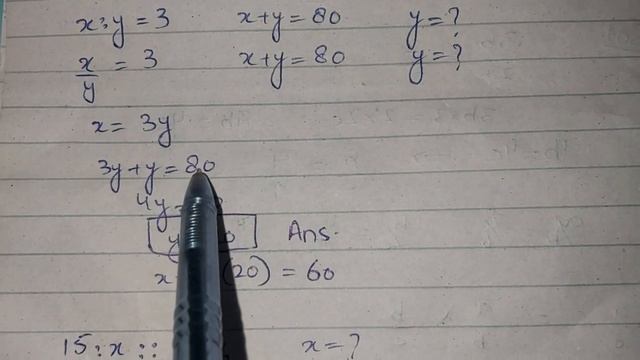 x:y = 3 x+y = 80 y = ?
x/y = 3 x+y = 80 y = ?
x = 3y
3y+y = 80
4y =
Ans.
x (20) = 60
15 : x :: x = ?